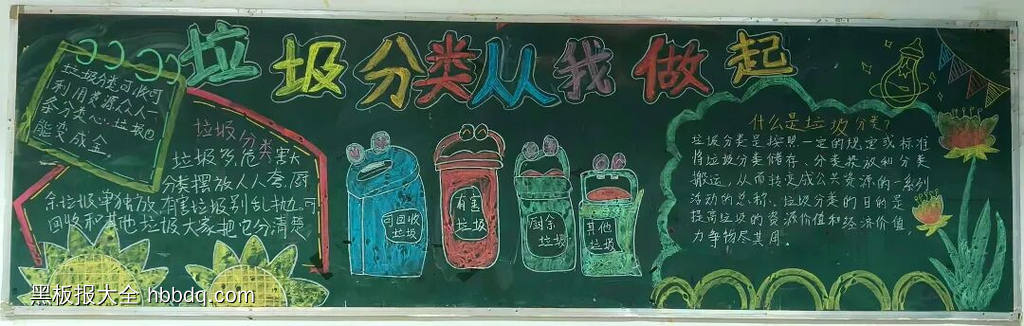 垃圾分类从我做起
垃圾分类可收可
利用资源众人一
条分类心垃圾回
能变成金
垃圾分类
垃圾多危害大
分类摆放人人夸厨
余垃圾单独放有害垃圾别乱抛可
回收和其他垃圾大家把它分清楚
可回收
垃圾
有害
垃圾
厨余
垃圾
其他
垃圾
什么是垃圾分类?
垃圾分类是按照一定的规定或标准
将垃圾分类储存、分类投放和分类
搬运,从而转变成公共资源的一系列
活动的总称。垃圾分类的目的是
提高垃圾的资源价值和经济价值
力争物尽其用。
黑板报大全 hbbdq.com